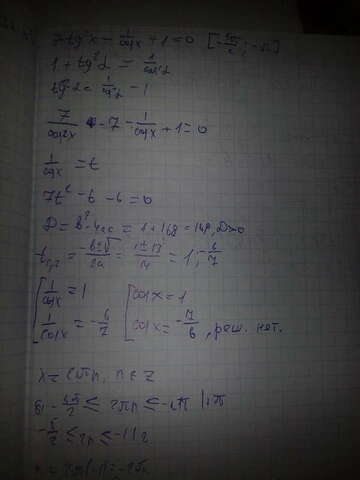 7tg²x - 1/cosx + 1 = 0 [-5π/2; -π]
1 + tg²α = 1/cos²α
tg²α = 1/cos²α - 1
7/cos²x - 7 - 1/cosx + 1 = 0
1/cosx = t
7t² - t - 6 = 0
D = b² - 4ac = 1 + 168 = 169, D>0
t₁,₂ = (-b±√)/2a = (1±13)/14 = 1; -6/7
[1/cosx = 1 [cosx = 1
1/cosx = -6/7 cosx = -7/6, реш. нет.
x = 2πn, n∈Z
-5π/2 ≤ 2πn ≤ -π